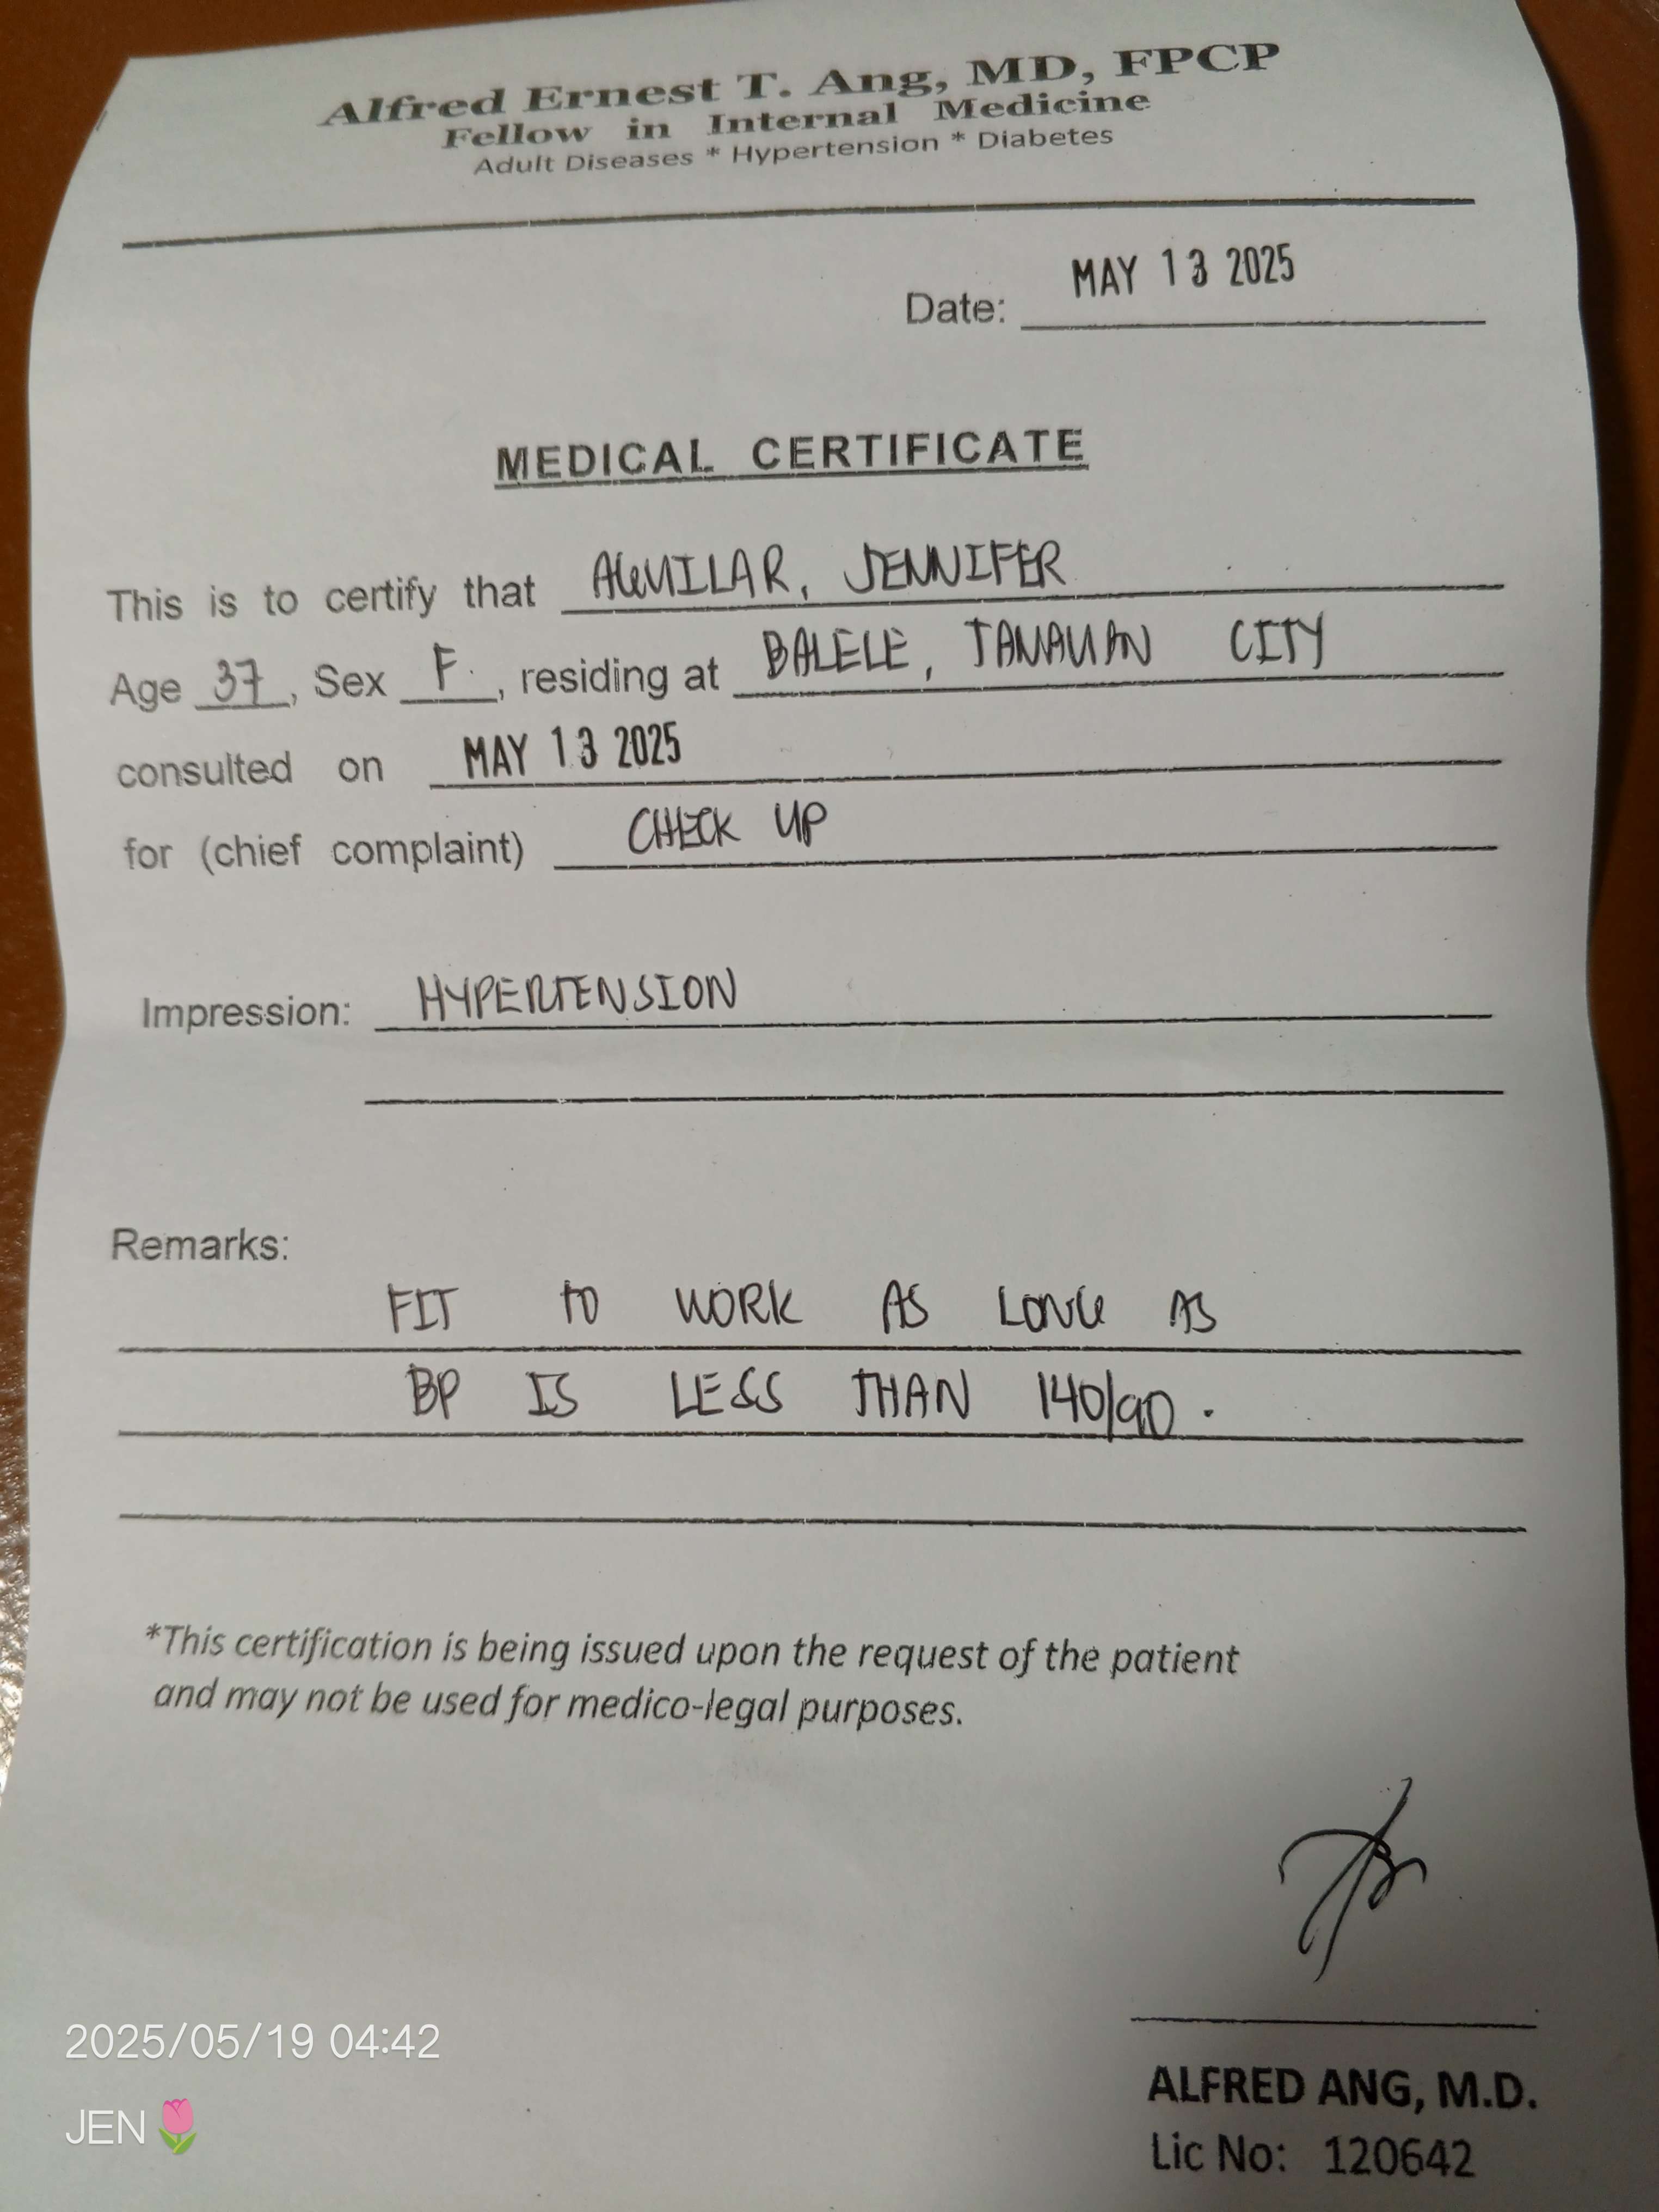 Alfred Ernest T. Ang, MD, FPCP
Fellow in Internal Medicine
Adult Diseases * Hypertension * Diabetes
Date: MAY 13 2025
MEDICAL CERTIFICATE
This is to certify that AGUILAR, JENNIFER
Age 37, Sex F., residing at BALELE, TANAUAN CITY
consulted on MAY 13 2025
for (chief complaint) CHECK UP
Impression: HYPERTENSION
Remarks:
FIT TO WORK AS LONG AS
BP IS LESS THAN 140/90.
*This certification is being issued upon the request of the patient
and may not be used for medico-legal purposes.
ALFRED ANG, M.D.
Lic No: 120642
2025/05/19 04:42
JEN🌷